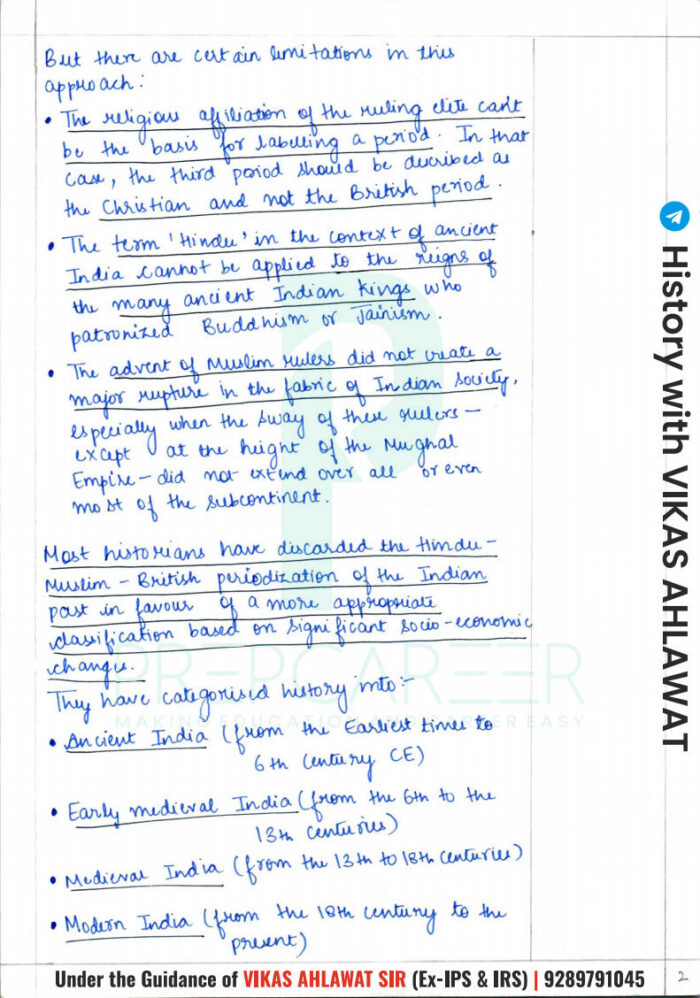 But there are certain limitations in this
approach:
• The religious affiliation of the ruling elite can't
be the basis for labelling a period. In that
case, the third period should be described as
the Christian and not the British period.
• The term 'Hindu' in the context of ancient
India cannot be applied to the reigns of
the many ancient Indian kings who
patronized Buddhism or Jainism.
• The advent of Muslim rulers did not create a
major rupture in the fabric of Indian society,
especially when the sway of these rulers –
except at the height of the Mughal
Empire – did not extend over all or even
most of the subcontinent.
Most historians have discarded the Hindu –
Muslim – British periodization of the Indian
past in favour of a more appropriate
classification based on significant socio-economic
changes.
PREPCAREER
They have categorised history into :-
MAKING EDUCATION AND CAREER EASY
• Ancient India (from the Earliest times to
6th century CE)
• Early medieval India (from the 6th to the
13th centuries)
• Medieval India (from the 13th to 18th centuries)
• Modern India (from the 18th century to the
present)
History with VIKAS AHLAWAT
Under the Guidance of VIKAS AHLAWAT SIR (Ex-IPS & IRS) | 9289791045
2